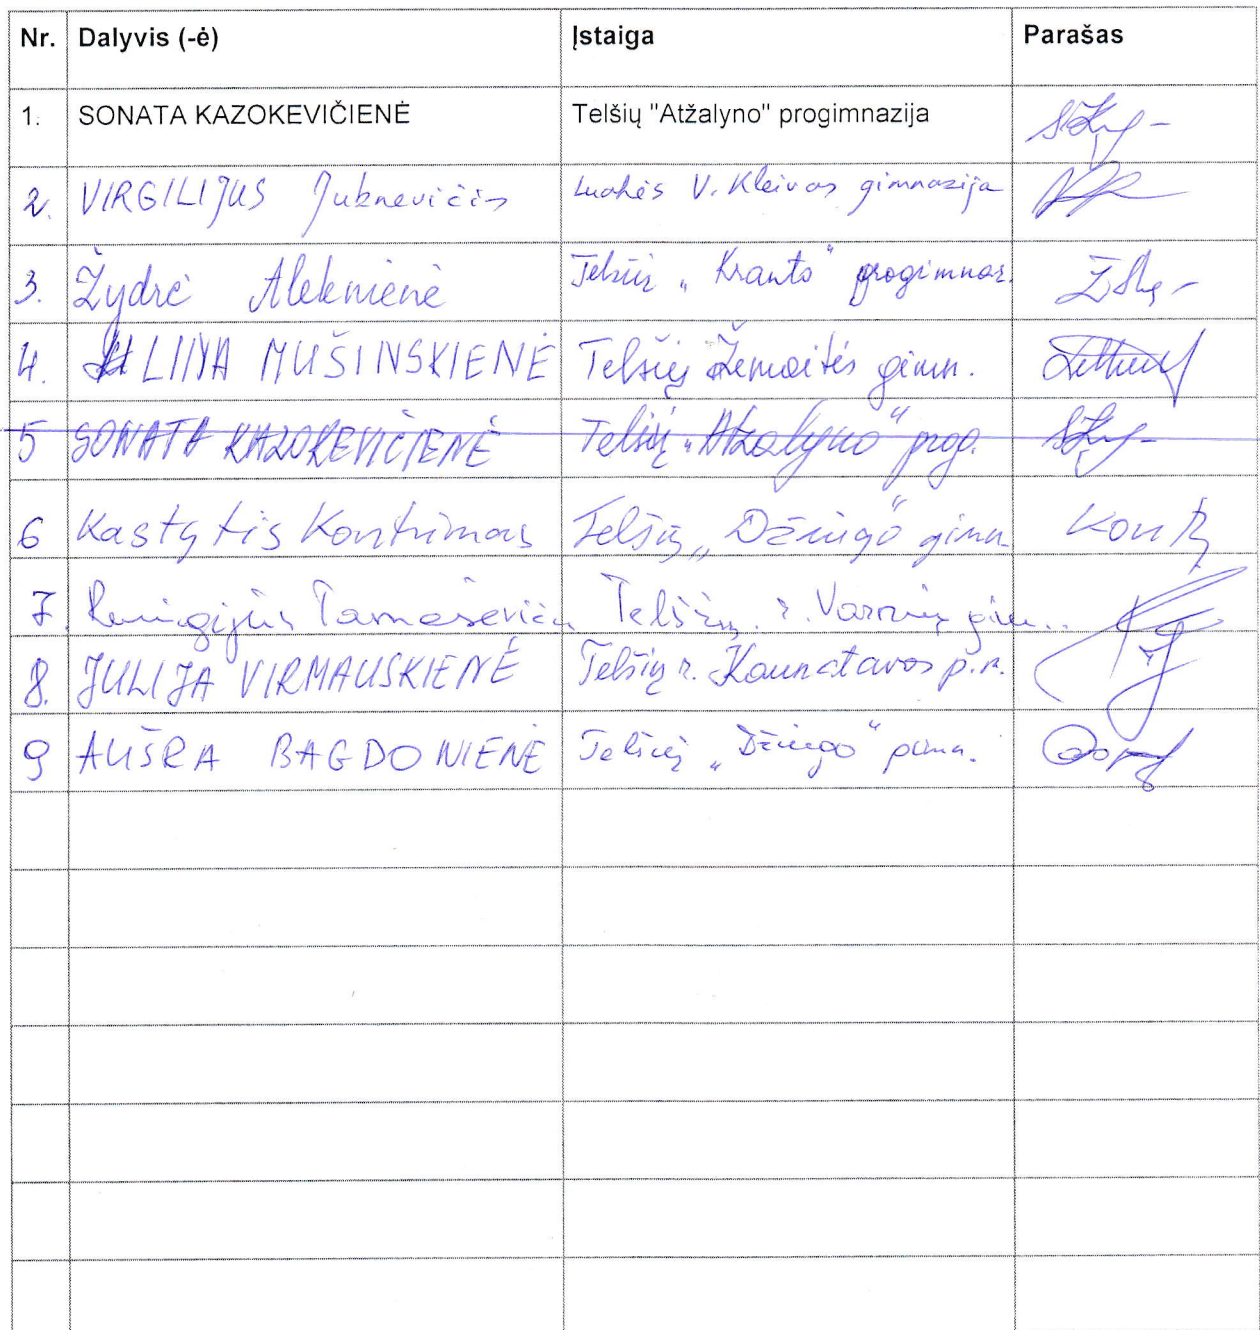 Nr. Dalyvis (-ė) Įstaiga Parašas
1. SONATA KAZOKEVIČIENĖ Telšių "Atžalyno" progimnazija
2. VIRGILIJUS Juknevičius Luokės V. Kleivos gimnazija
3. Žydrė Aleknienė Telšių „Kranto“ progimnaz.
4. LINA MUŠINSKIENĖ Telšių Žemaitės gimn.
5 SONATA KAZOKEVIČIENĖ Telšių „Atžalyno“ prog.
6 Kastytis Kontrimas Telšių „Džiugo“ gimn.
7. Remigijus Tamaševičius Telšių r. Varnių gimn.
8. JULIJA VIRMAUSKIENĖ Telšių r. Kaunatavos p.m.
9 AUŠRA BAGDONIENĖ Telšių „Džiugo“ gimn.